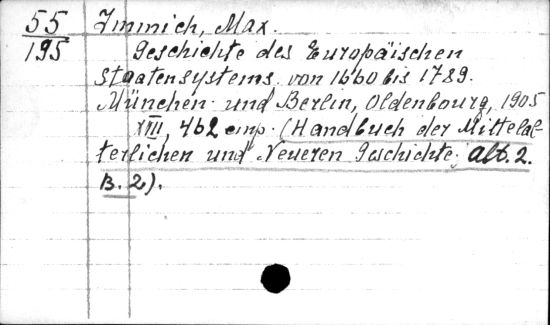 55 Immich, Max.
195 Geschichte des Europäischen
Staatensystems von 1660 bis 1789.
München und Berlin, Oldenbourg, 1905
XIII, 462 стр. (Handbuch der Mittelal-
terlichen und Neueren Geschichte; Abt. 2.
B. 2).